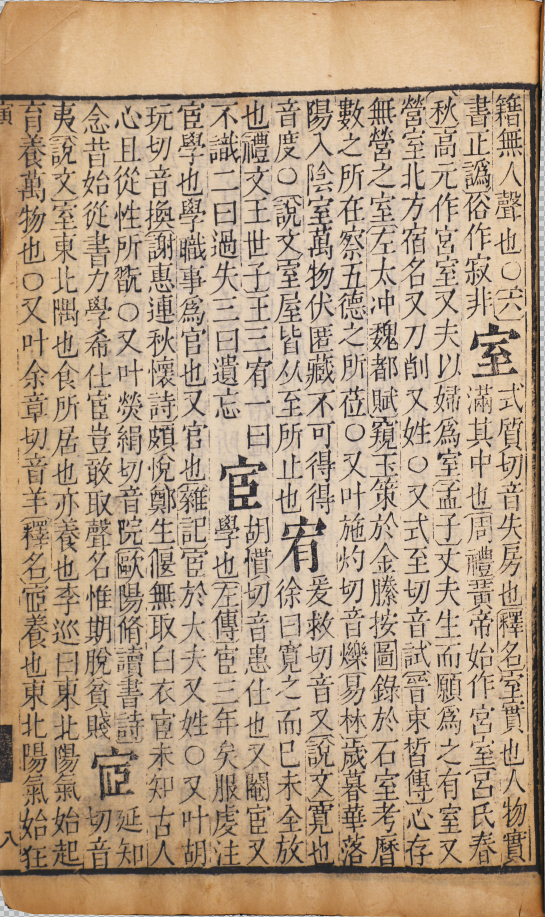 籍無入聲也○六
書正譌俗作寂非 室 式質切音失房也釋名室實也人物實
滿其中也周禮黃帝始作宮室呂氏春
秋高元作宮室又夫以婦爲室孟子丈夫生而願爲之有室又
營室北方宿名又刀削又姓○又式至切音試晉束晳傳心存
無營之室左太冲魏都賦窺玉策於金縢按圖錄於石室考曆
數之所在察五德之所莅○又叶施灼切音爍易林歲暮華落
陽入陰室萬物伏匿藏不可得得
音度○說文室屋皆从至所止也 宥 爰救切音又說文寬也
徐曰寬之而已未全放
也禮文王世子王三宥一曰
不識二曰過失三曰遺忘 宦 胡慣切音患仕也又閹宦又
學也左傳宦三年矣服虔注
宦學也學職事爲官也又官也雜記宦於大夫又姓○又叶胡
玩切音換謝惠連秋懷詩頗悅鄭生偃無取白衣宦未知古人
心且從性所翫○又叶熒絹切音院歐陽脩讀書詩
念昔始從書力學希仕宦豈敢取聲名惟期脫貧賤 宧 延知
切音
夷說文室東北隅也食所居也亦養也李巡曰東北陽氣始起
育養萬物也○又叶余章切音羊釋名宧養也東北陽氣始在
八